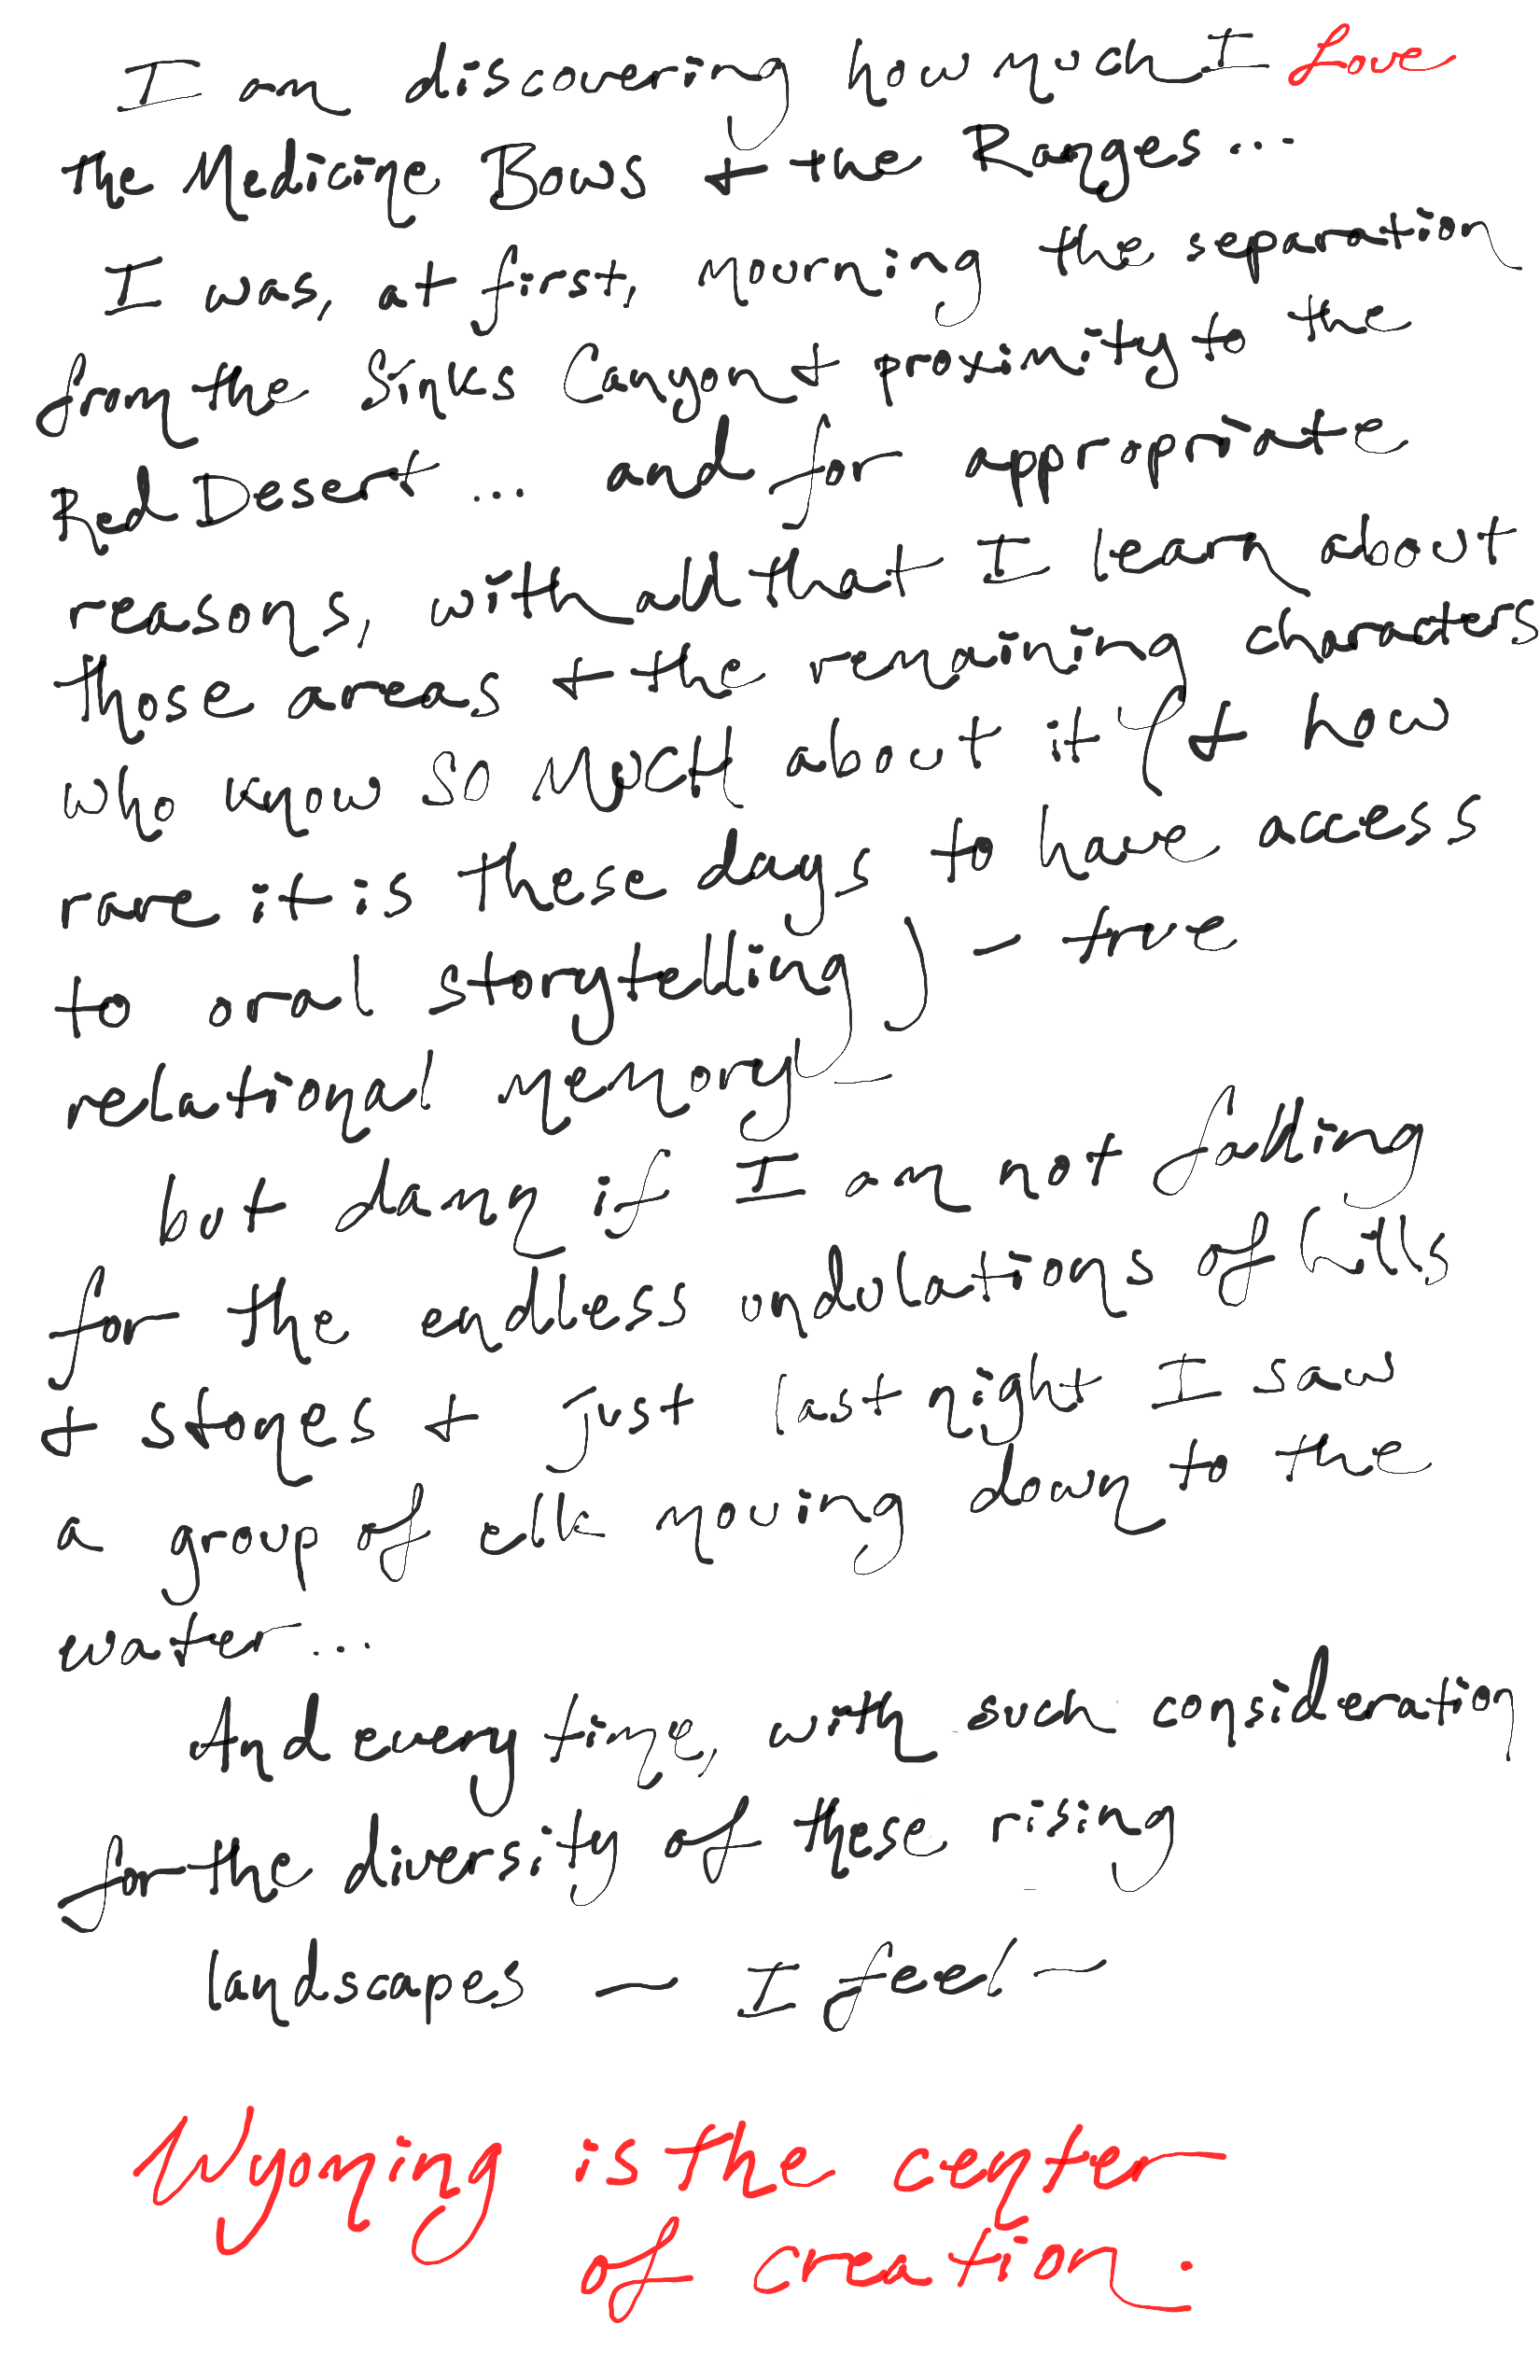 I am discovering how much I Love
the Medicine Bows + the Ranges...
I was, at first, mourning the separation
from the Sinks Canyon + proximity to the
Red Desert... and for appropriate
reasons, with all that I learn about
those areas + the remaining characters
who know SO MUCH about it (+ how
rare it is these days to have access
to oral storytelling) - true
relational memory -
but damn if I am not falling
for the endless undulations of hills
+ stones + just last night I saw
a group of elk moving down to the
water...
And every time, with such consideration
for the diversity of these rising
landscapes - I feel -
Wyoming is the center
of creation.